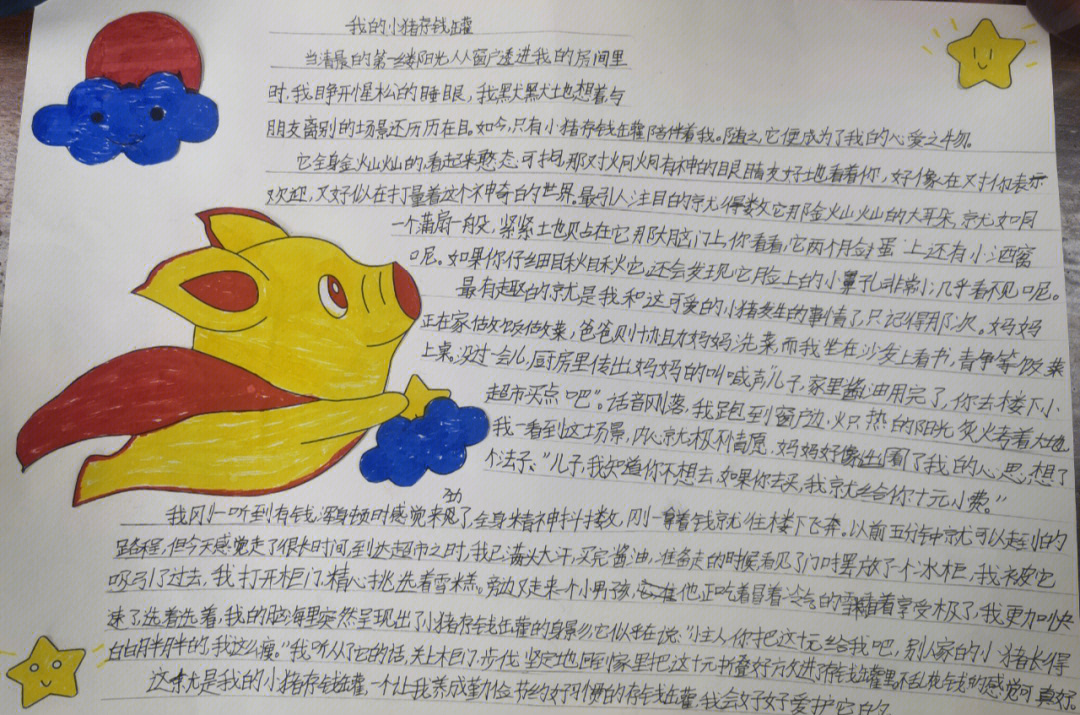 我的小猪存钱罐
当清晨的第一缕阳光从窗户透进我的房间里
时,我睁开惺松的睡眼,我默默地想着与
朋友离别的场景还历历在目。如今,只有小猪存钱罐陪伴着我。随之,它便成为了我的心爱之物。
它全身金灿灿的,看起来憨态可掬,那对炯炯有神的眼睛友好地看着你,好像在对你表示
欢迎,又好似在打量着这个神奇的世界。最引人注目的就得数它那金灿灿的大耳朵,就如同
一个蒲扇一般,紧紧地贴在它那大脑门上,你看看,它两个脸蛋上还有小酒窝
呢。如果你仔细瞅瞅它,还会发现它脸上的小鼻孔非常小,几乎看不见呢。
最有趣的就是我和这可爱的小猪发生的事情了,只记得那次。妈妈
正在家做饭做菜,爸爸则协助妈妈洗菜,而我坐在沙发上看书,静等饭菜
上桌。没过一会儿,厨房里传出妈妈的叫喊声"儿子,家里酱油用完了,你去楼下小
超市买点吧"。话音刚落,我跑到窗户边,炽热的阳光炙烤着大地
我一看到这场景,内心就极不情愿。妈妈好像看出了我的心思,想了
个法子:"儿子,我知道你不想去,如果你去买,我就给你十元小费。"
我刚一听到有钱,浑身顿时感觉来劲了,全身精神抖擞,刚一拿着钱就往楼下飞奔。以前五分钟就可以走到的
路程,但今天感觉走了很长时间,到达超市之时,我已满头大汗,买完酱油,准备走的时候,看见了门口摆放了个冰柜,我被它
吸引了过去,我打开柜门,精心挑选着雪糕。旁边又走来个小男孩,他正吃着冒着冷气的雪糕享受极了,我更加快
速了选着选着,我的脑海里突然呈现出了小猪存钱罐的身影,它似乎在说:"小主人你把这十元给我吧,别人家的小猪长得
白白胖胖的,我这么瘦。"我听从了它的话,关上柜门,步伐坚定地回到家里把这十元折叠好,放进了存钱罐里,不乱花钱的感觉可真好。
这就是我的小猪存钱罐,一个让我养成勤俭节约好习惯的存钱罐,我会好好爱护它的。